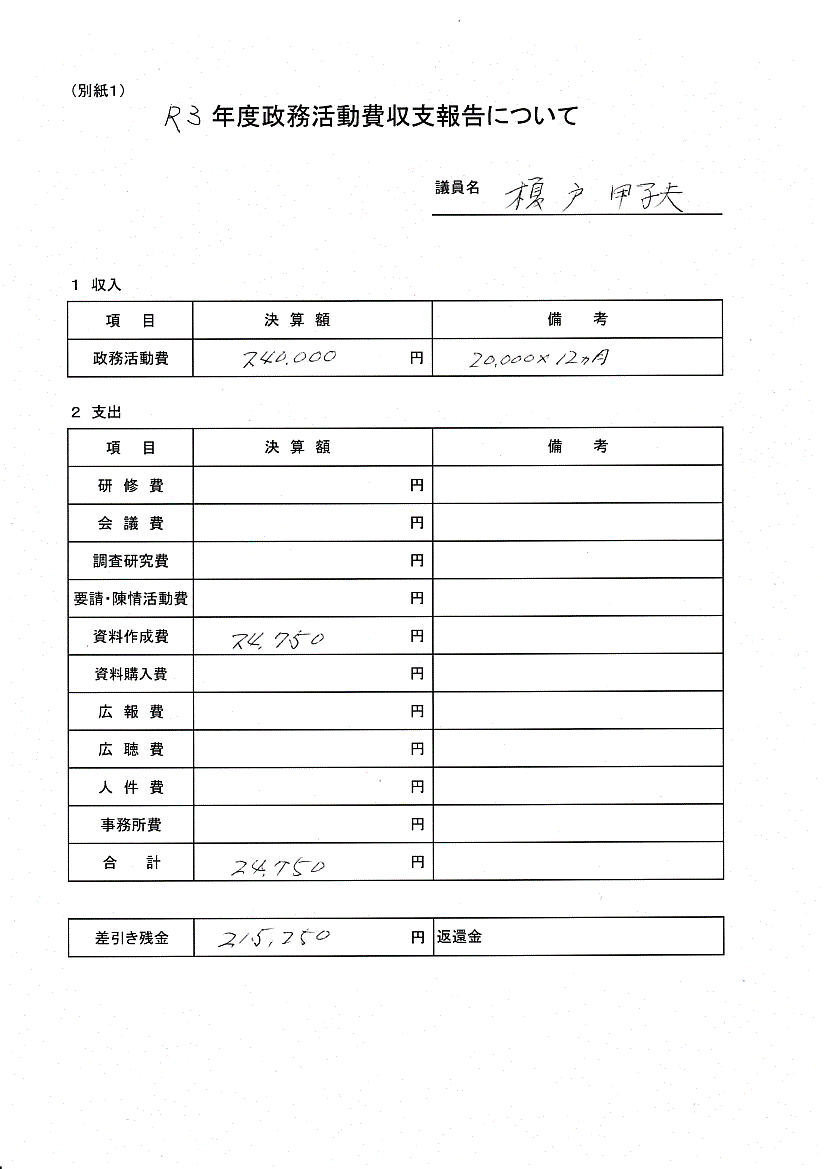 （別紙1）
R3年度政務活動費収支報告について
議員名 榎戸 甲子夫
1 収入
項 目 決 算 額 備 考
政務活動費 240,000 円 20,000×12ヵ月
2 支出
項 目 決 算 額 備 考
研 修 費 円
会 議 費 円
調査研究費 円
要請・陳情活動費 円
資料作成費 24,750 円
資料購入費 円
広 報 費 円
広 聴 費 円
人 件 費 円
事務所費 円
合 計 24,750 円
差引き残金 215,250 円 返還金